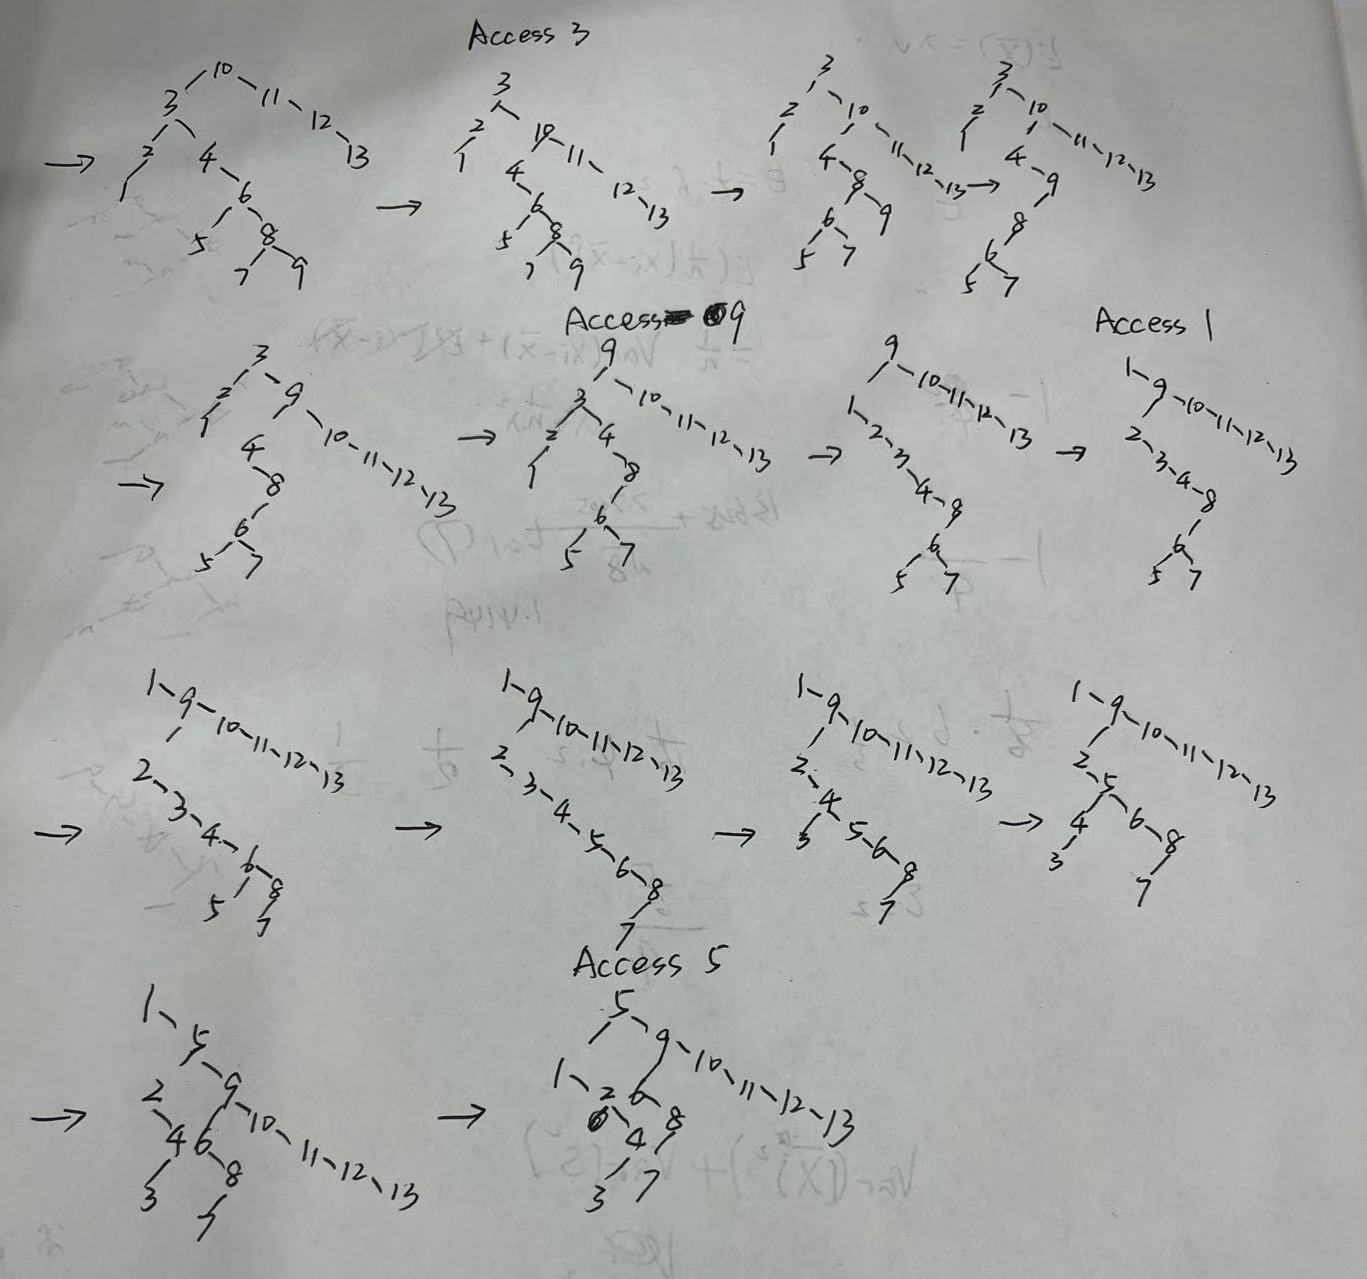 Access 3
10
3 11
2 4 12
1 6 13
5 8
7 9
→
3
2 10
1 4 11
6 12
5 8 13
7 9
→
3
2 10
1 4 11
8 12
6 9 13
5 7
→
3
2 10
1 4 11
9 12
8 13
6
5 7
→
Access 9
Access 1
3
2 9
1 4 10
8 11
6 12
5 7 13
→
9
3 10
2 4 11
1 8 12
6 13
5 7
→
9
1 10
2 11
3 12
4 13
8
6
5 7
→
1
9
2 10
3 11
4 12
8 13
6
5 7
→
1
9
2 10
3 11
4 12
6 13
5 8
7
→
1
9
2 10
3 11
4 12
5 13
6
8
7
→
1
9
2 10
4 11
3 5 12
6 13
8
7
→
1
9
2 10
5 11
4 6 12
3 8 13
7
→
Access 5
1
5
2 9
4 6 10
3 8 11
7 12
13
→
5
1 9
2 6 10
4 8 11
3 7 12
13
→